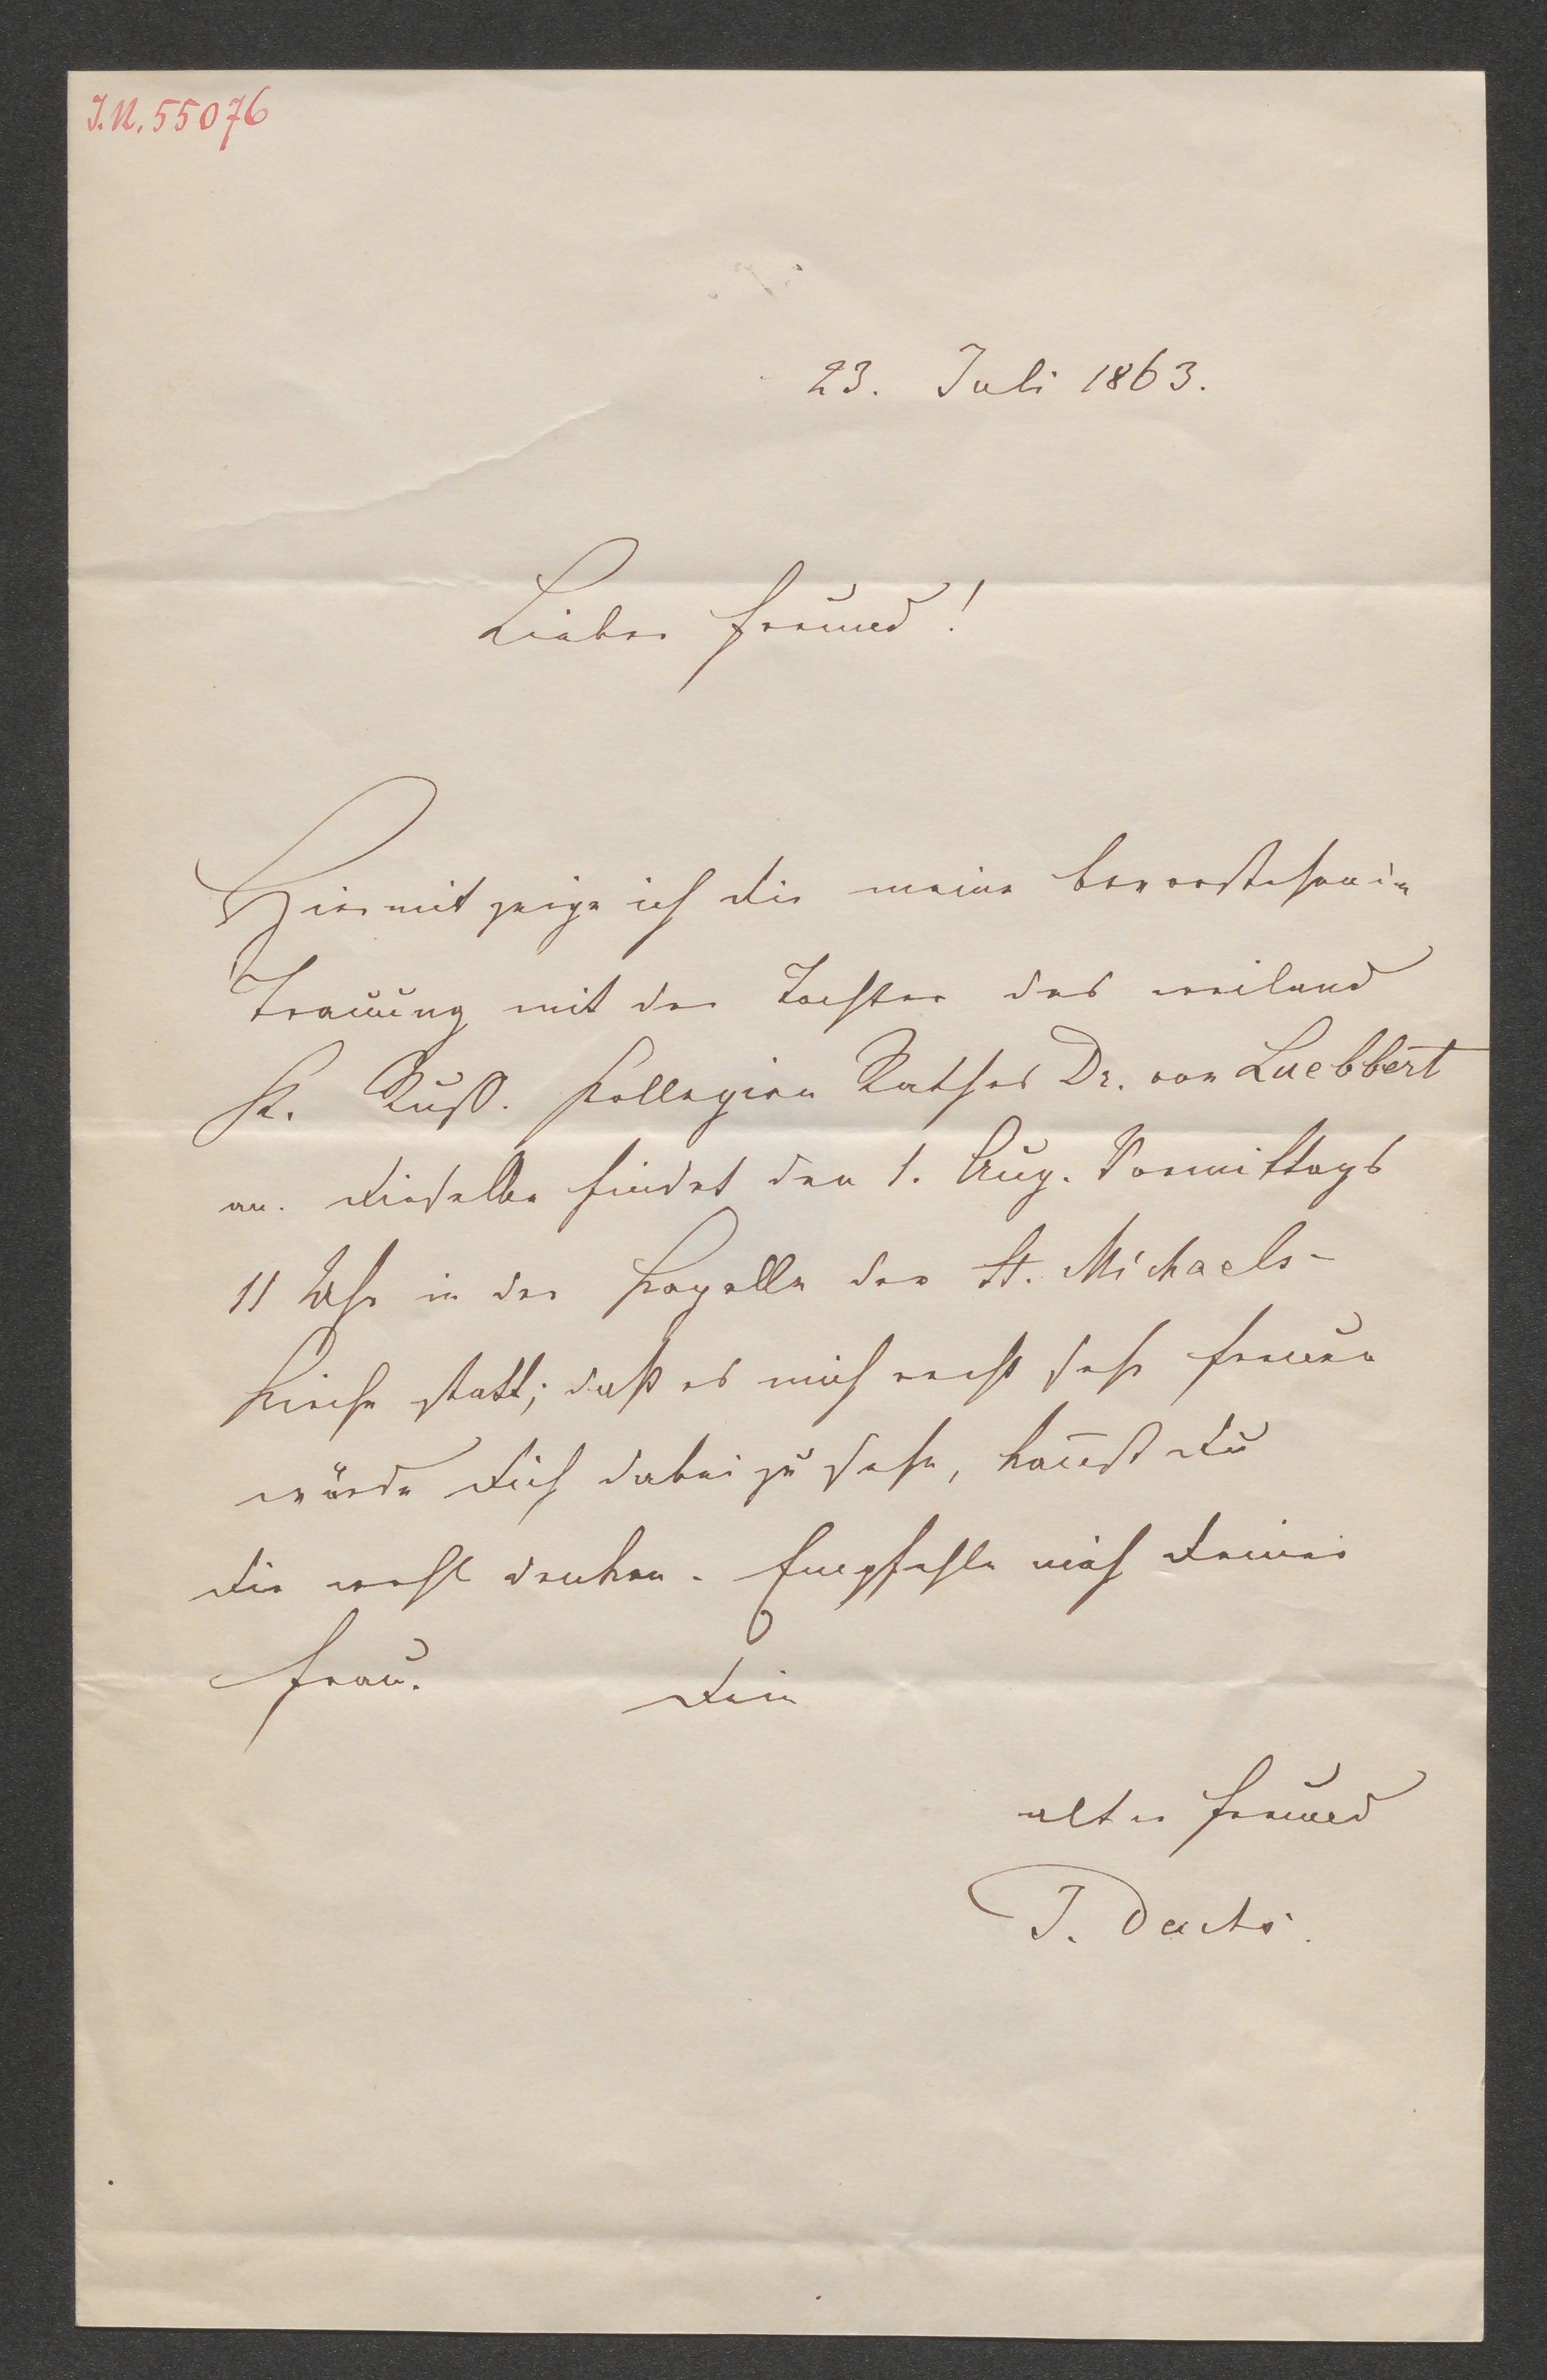 J.N. 55076
23. Juli 1863.
Lieber Freund!
Hiermit zeige ich Dir meine bevorstehende
Trauung mit der Tochter des weiland
K. Russ. Kollegien Rathes Dr. von Luebbert
an. Dieselbe findet den 1. Aug. Vormittags
11 Uhr in der Kapelle der St. Michaels-
Kirche statt; daß es mich recht sehr freuen
würde Dich dabei zu sehn, kannst Du
Dir wohl denken. Empfehle mich Deiner
Frau. Dein
alter Freund
J. Dachs.